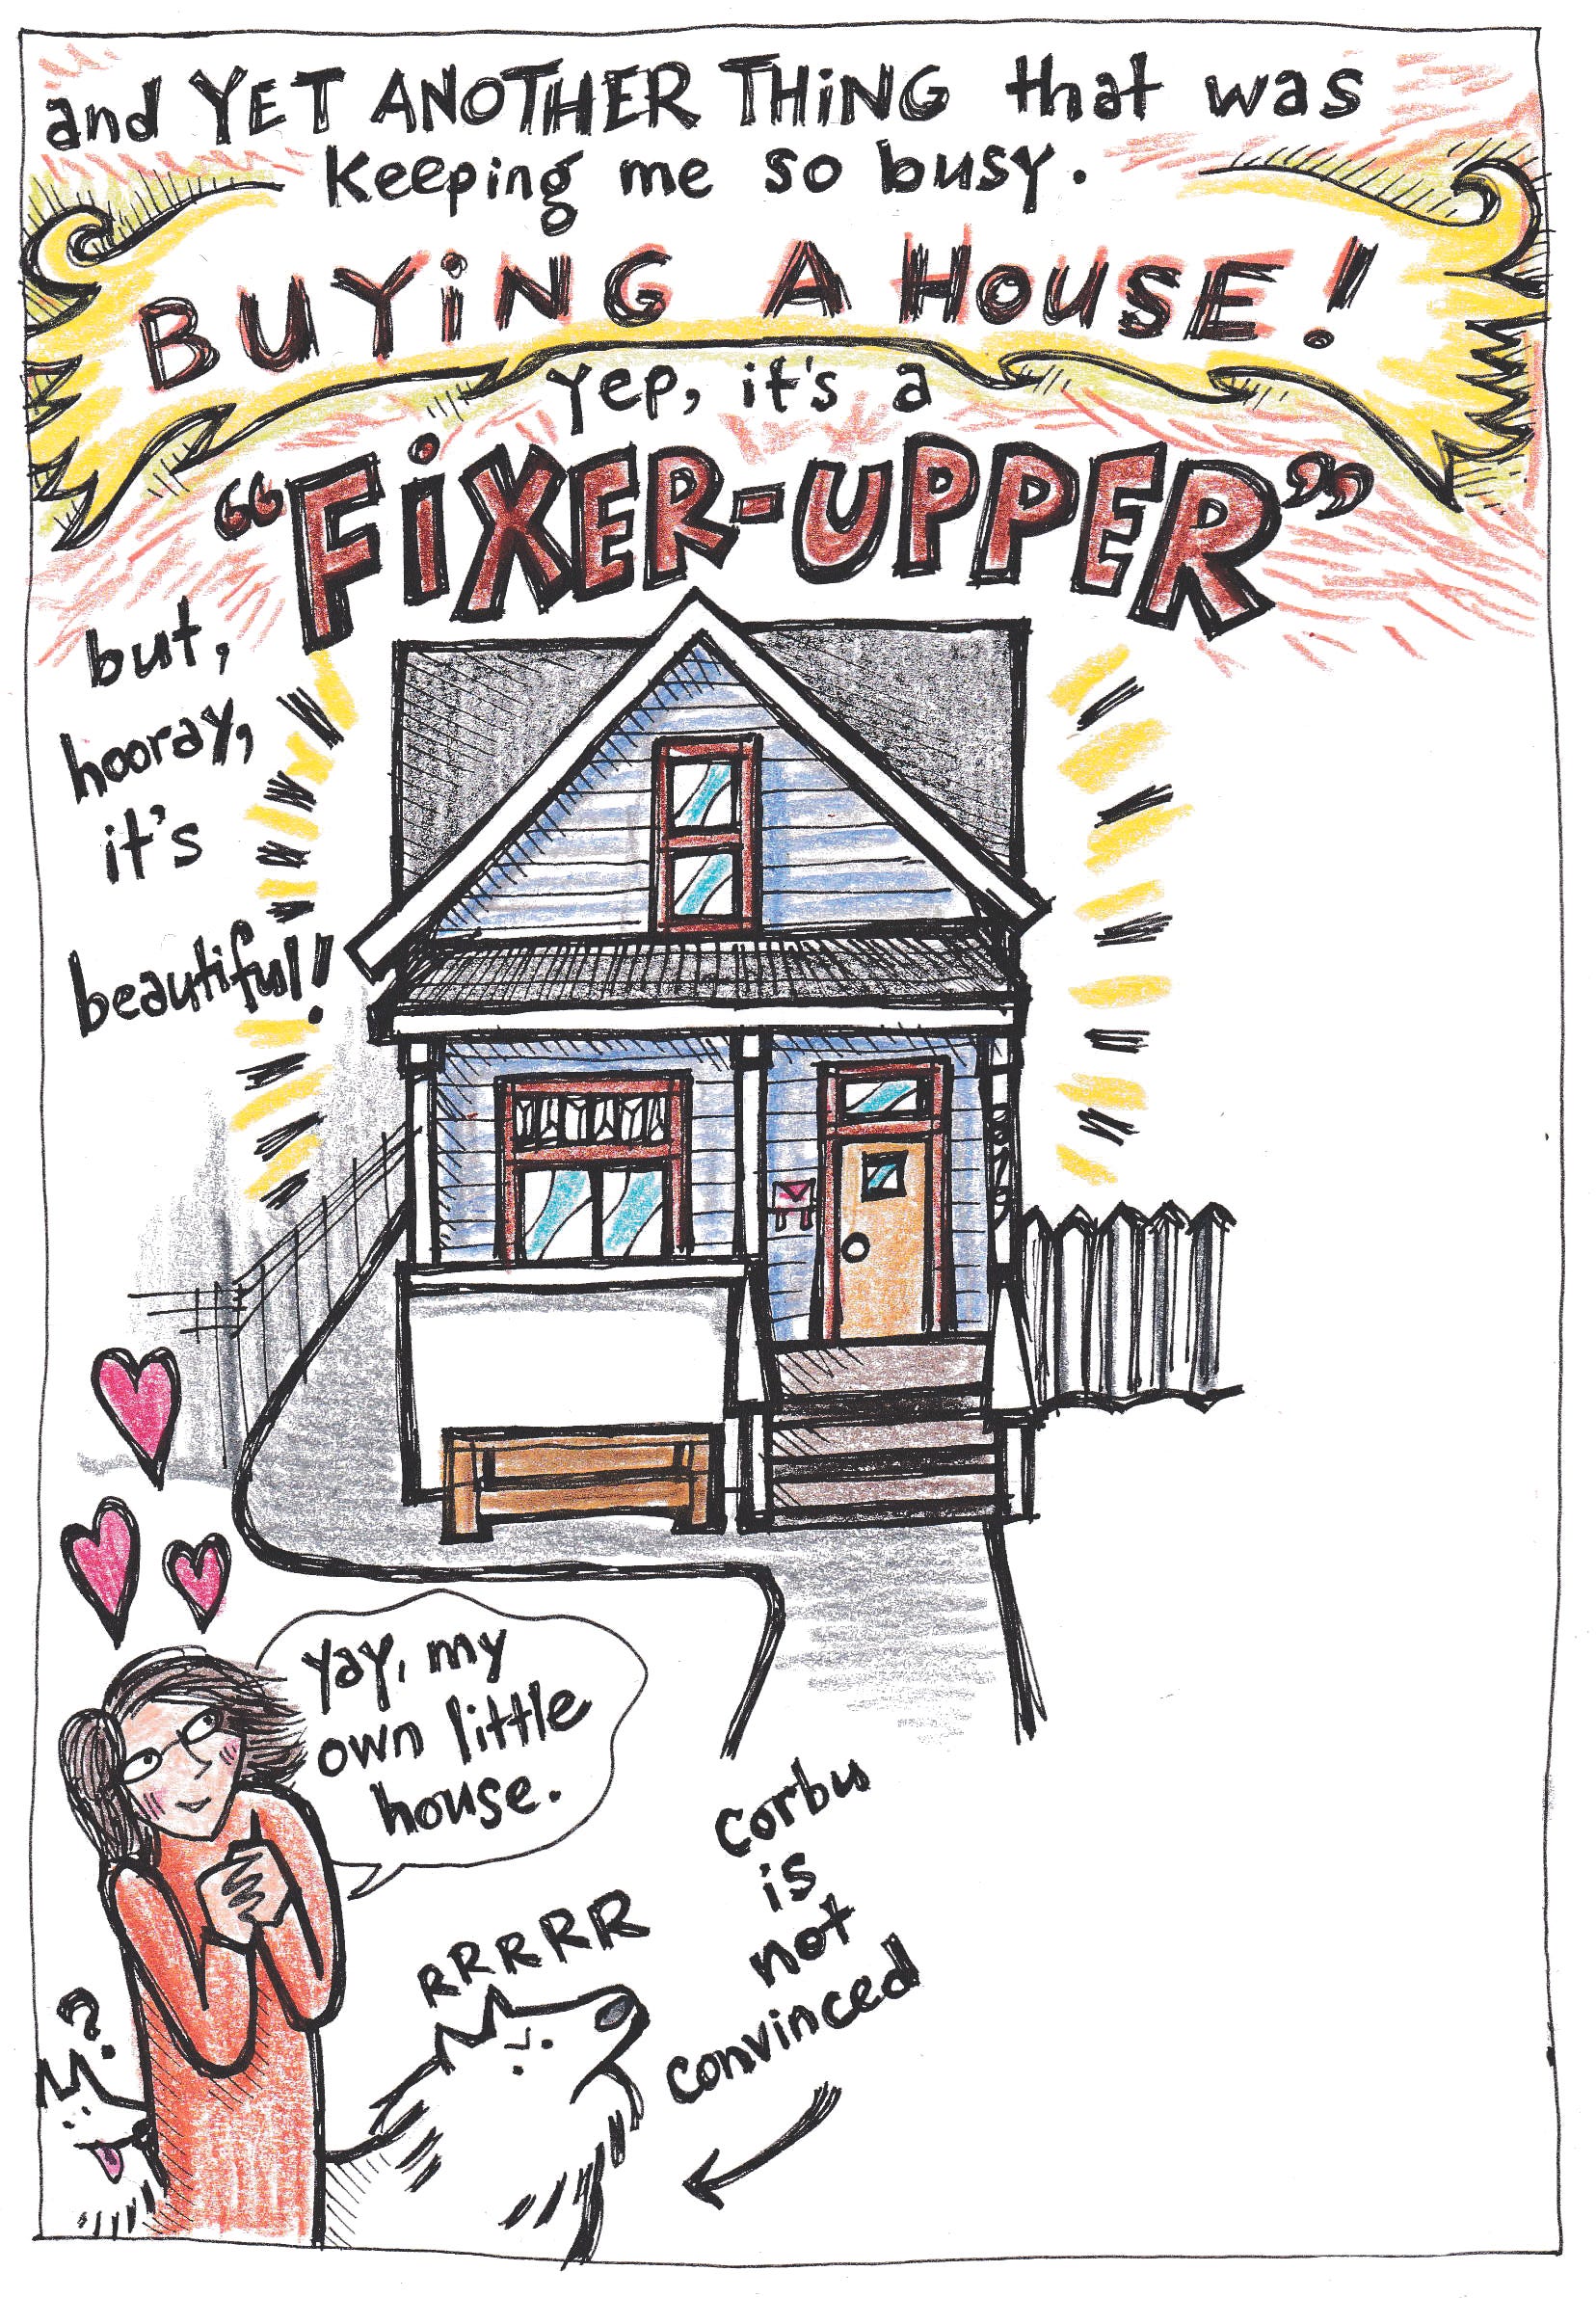 and YET ANOTHER THiNG that was
keeping me so busy.
BUYiNG A HOUSE!
yep, it's a
"FiXER-UPPER"
but,
hooray,
it's
beautiful!
Yay, my
own little
house.
Corbu
is
not
convinced
RRRRR
?